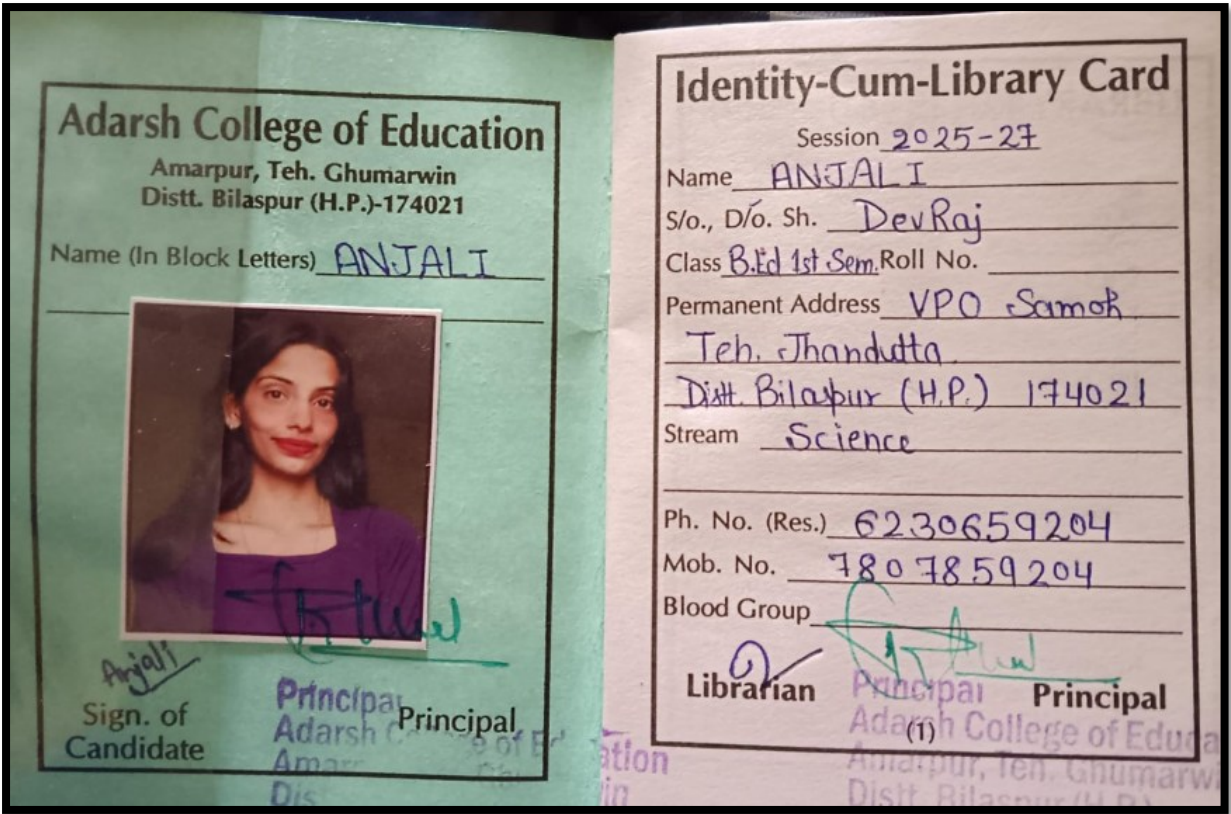 Adarsh College of Education
Amarpur, Teh. Ghumarwin
Distt. Bilaspur (H.P.)-174021
Name (In Block Letters) ANJALI
Anjali
Sign. of
Candidate
Principal
Principal
Adarsh College of Education
Identity-Cum-Library Card
Session 2025-27
Name ANJALI
S/o., D/o. Sh. Dev Raj
Class B.Ed 1st Sem. Roll No.
Permanent Address VPO Samoh
Teh. Jhandutta
Distt. Bilaspur (H.P.) 174021
Stream Science
Ph. No. (Res.) 6230659204
Mob. No. 7807859204
Blood Group
Librarian
Principal
Principal
(1)
Adarsh College of Educa
Amarpur, Teh. Ghumarwi
Distt. Bilaspur (H.P.)